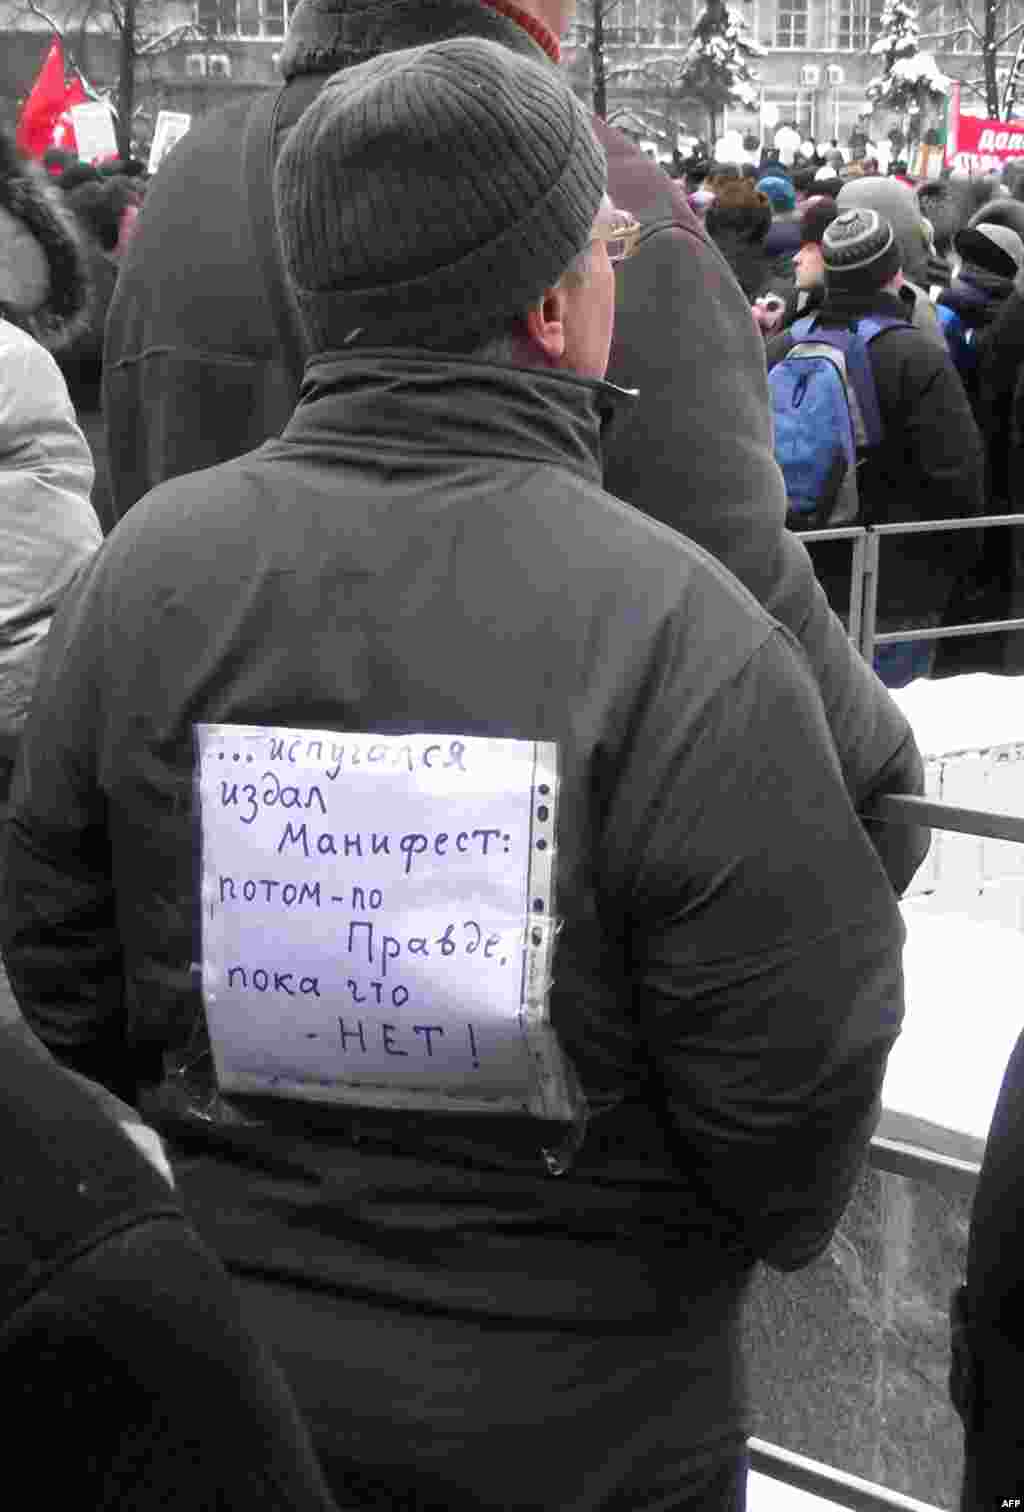 ...испугался
издал
Манифест:
потом-по
Правде,
пока что
-НЕТ!
ДОЛ
AFP